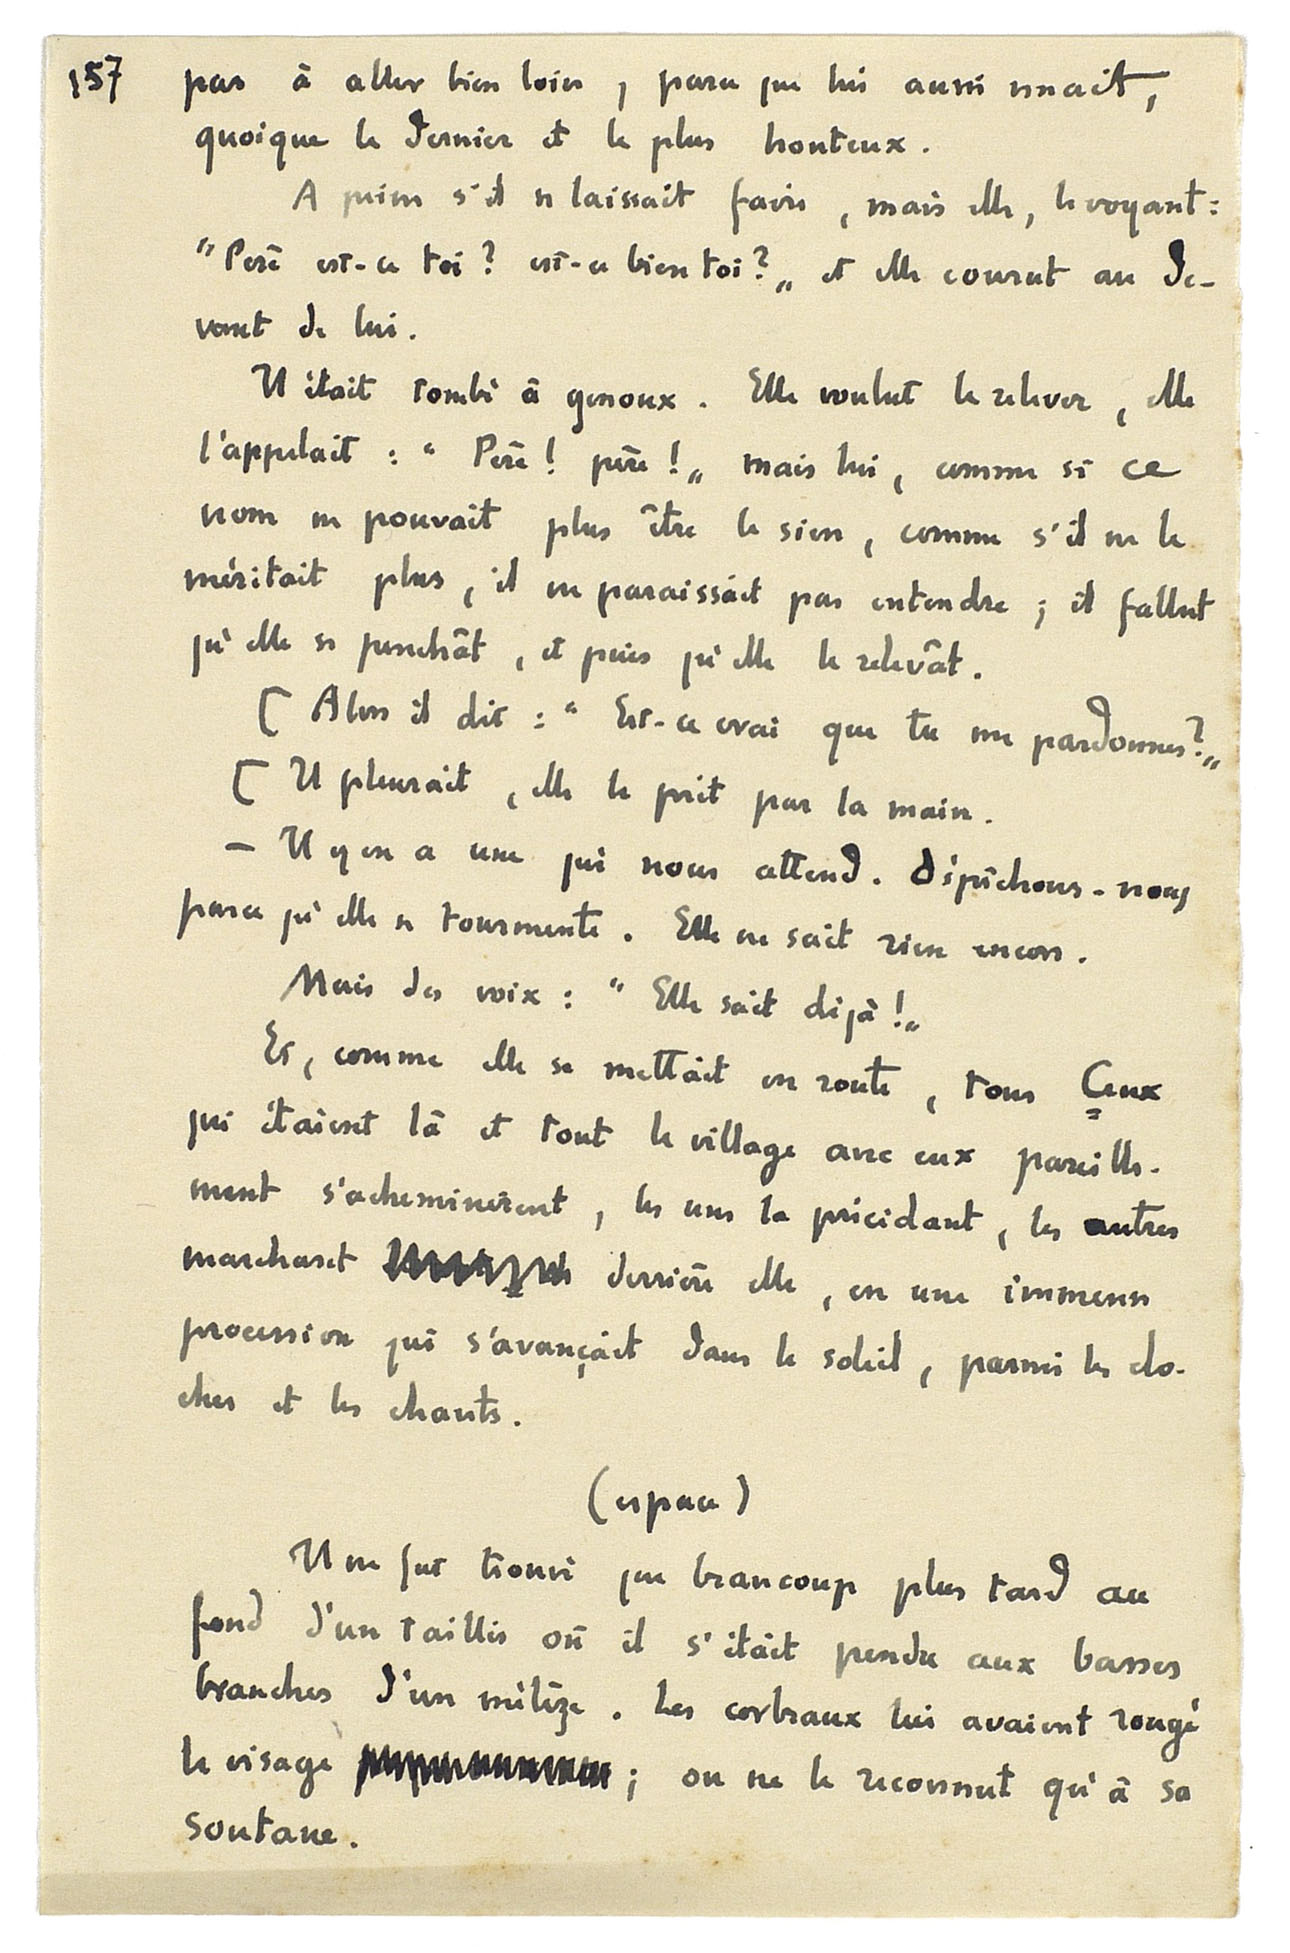 157
pas à aller bien loin, parce que lui aussi venait,
quoique le dernier et le plus honteux.
A peine s'il se laissait faire, mais elle, le voyant :
"Père est-ce toi ? est-ce bien toi ?" et elle courut au de-
vant de lui.
Il était tombé à genoux. Elle voulut le relever, elle
l'appelait : "Père ! père !" mais lui, comme si ce
nom ne pouvait plus être le sien, comme s'il ne le
méritait plus, il ne paraissait pas entendre ; il fallut
qu'elle se penchât, et puis qu'elle le relevât.
[ Alors il dit : "Est-ce vrai que tu me pardonnes ?"
[ Il pleurait, elle le prit par la main.
— Il y en a une qui nous attend. Dépêchons-nous
parce qu'elle se tourmente. Elle ne sait rien encore.
Mais des voix : "Elle sait déjà !"
Et, comme elle se mettait en route, tous Ceux
qui étaient là et tout le village avec eux pareille-
ment s'acheminèrent, les uns la précédant, les autres
marchant derrière elle, en une immense
procession qui s'avançait dans le soleil, parmi les clo-
ches et les chants.
(espace)
Il ne fut trouvé que beaucoup plus tard au
fond d'un taillis où il s'était pendu aux basses
branches d'un mélèze. Les corbeaux lui avaient rongé
le visage ; on ne le reconnut qu'à sa
soutane.